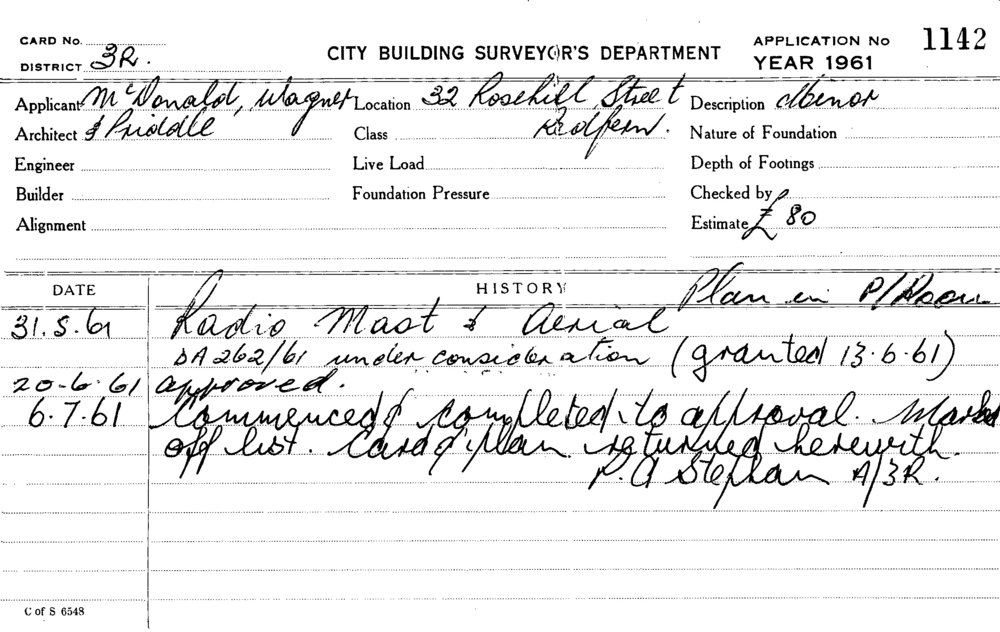 CARD No.
DISTRICT 3R.
CITY BUILDING SURVEYOR'S DEPARTMENT
APPLICATION No 1142
YEAR 1961
Applicant McDonald, Wagner Location 32 Rosehill Street Description Minor
Architect & Priddle Class Redfern. Nature of Foundation
Engineer Live Load Depth of Footings
Builder Foundation Pressure Checked by
Alignment Estimate £ 80
DATE HISTORY Plan in P/Room
31.5.61 Radio Mast & Aerial
DA 262/61 under consideration (granted 13.6.61)
20.6.61 approved.
6.7.61 Commenced & completed to approval. Marked
off list. Card & plan returned herewith.
P. A Stephan A/3R.
C of S 6548